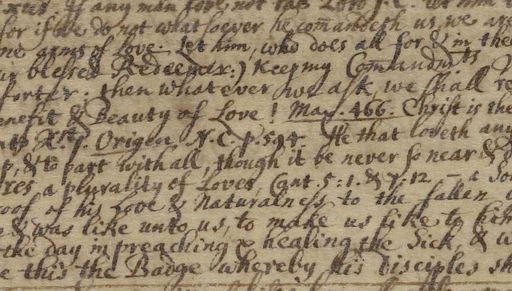 If any man love not the Lord J. C. let him
for if we do not whatsoever he comandeth us, we are
arms of love. Let him, who does all for & in thee
blessed Redeemer:) Keep my Comandmts
forter. then whatever we ask, we shall re
enefit & Beauty of Love! Man. 466. Christ is the
Xt. Origen. N.C. p.594. He that loveth any
& to part with all, though it be never so near &
res a plurality of Loves, Cant. 5.1. & 7.12 - a
oof of his Love & Naturalness to the fallen
& was like unto us, to make us like to him
the day in preaching & healing the Sick, & w
e this the Badge whereby his Disciples sh